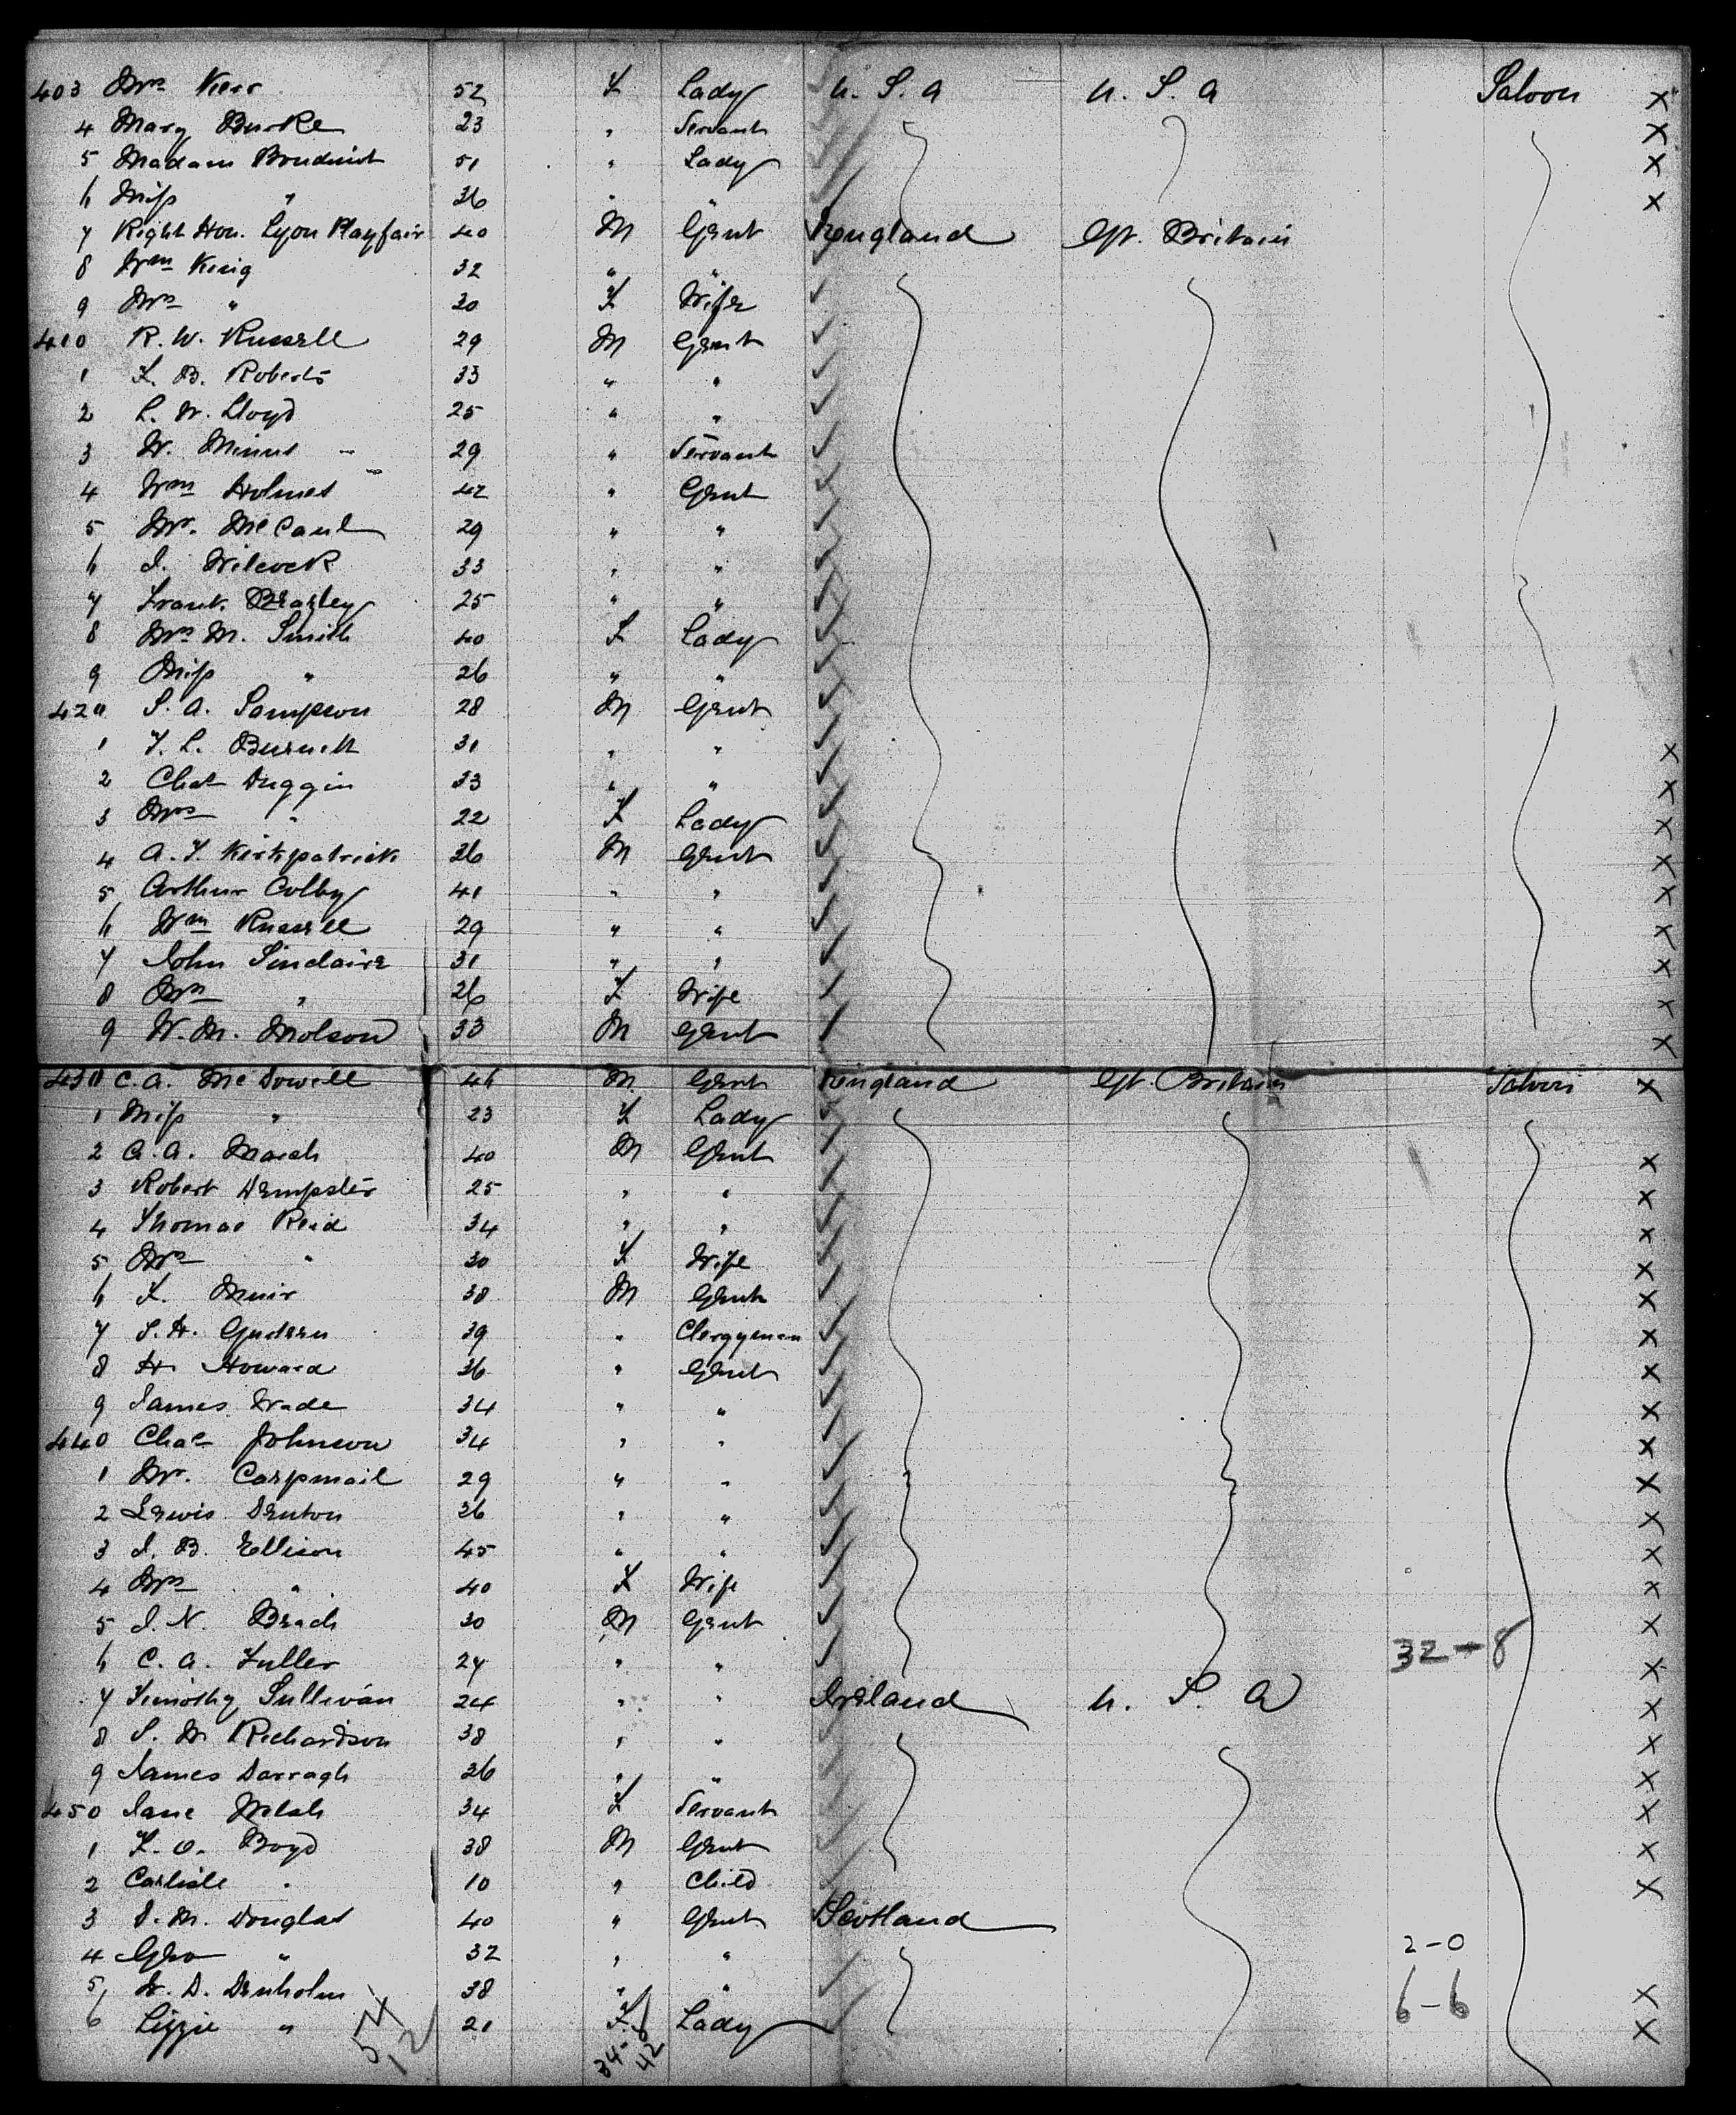 403 Mrs Kerr 52 F Lady U. S. A U. S. A Saloon X
4 Mary Burke 23 " Servant X
5 Madam Boudinot 51 " Lady X
6 Miss " 26 " " X
7 Right Hon. Lyon Playfair 40 M Gent England Gt. Britain
8 Wm King 32 " "
9 Mrs " 30 F Wife
410 R. W. Russell 29 M Gent
1 F. B. Roberts 33 " "
2 L. W. Lloyd 25 " "
3 W. 29 " Servant
4 Wm Holmes 42 " Gent
5 Mr. McCaul 29 " "
6 J. Wilcock 33 " "
7 Frank 25 " "
8 Mrs M. Smith 40 F Lady
9 Miss " 26 " "
420 S. A. Sampson 28 M Gent
1 T. L. Burnett 31 " " X
2 Chas Duggin 33 " " X
3 Mrs " 22 F Lady X
4 A. T. Kirkpatrick 36 M Gent X
5 Arthur Colby 41 " " X
6 Wm Russell 29 " " X
7 John Sinclaire 31 " " X
8 Mrs " 26 F Wife X
9 W. M. Molson 33 M Gent X
430 C. A. McDowell 46 M Gent England Gt. Britain Saloon X
1 Miss " 23 F Lady
2 A. A. March 40 M Gent X
3 Robert Dempster 25 " " X
4 Thomas Reid 34 " " X
5 Mrs " 30 F Wife X
6 F. Muir 38 M Gent X
7 S. H. 39 " Clergyman X
8 H. Howard 36 " Gent X
9 James Wade 34 " " X
440 Chas Johnson 34 " " X
1 Mr. Carpmail 29 " " X
2 Lewis Denton 36 " " X
3 J. B. Ellison 45 " " X
4 Mrs " 40 F Wife X
5 J. N. Beach 30 M Gent X
6 C. A. Fuller 24 " " 32-8 X
7 Timothy Sullivan 24 " " Ireland U. S. A X
8 S. W. Richardson 38 " " X
9 James Darragh 36 " " X
450 Jane Welsh 34 F Servant X
1 F. O. Boyd 38 M Gent X
2 Carlisle " 10 " Child X
3 J. M. Douglas 40 " Gent Scotland
4 Geo " 32 " " 2-0
5 W. D. Denholm 38 " " 6-6 X
6 Lizzie " 21 F Lady X
54 34-8
12 42